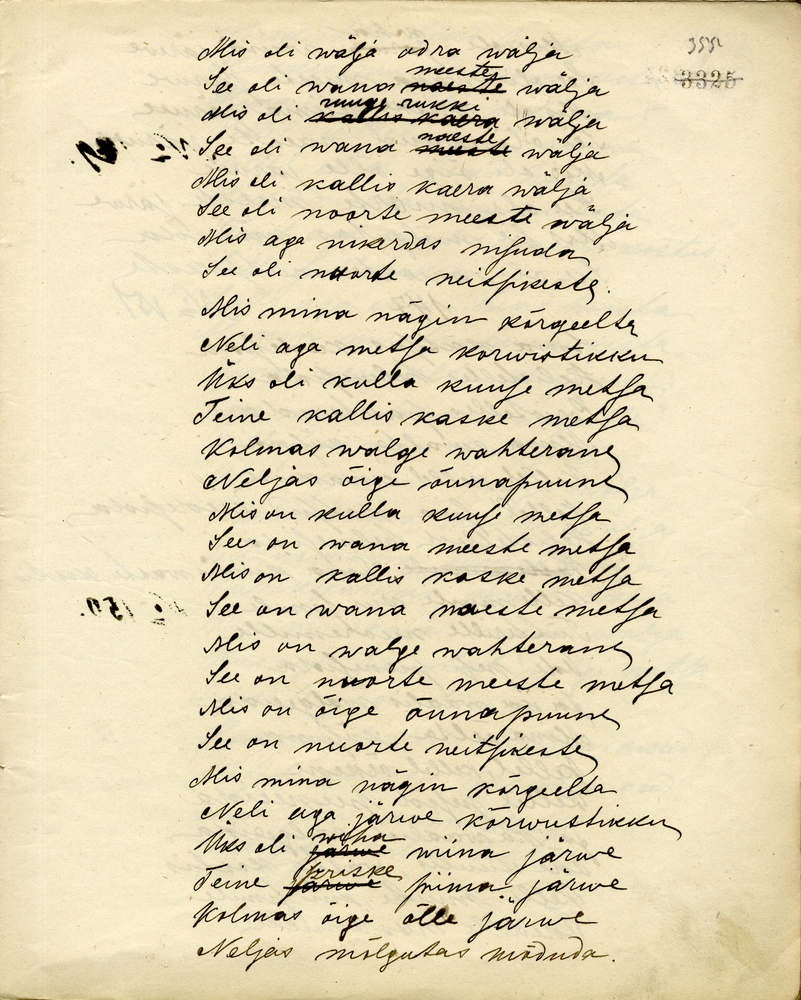 3551
3325
Mis oli wälja odra wälja
See oli wana meeste naeste wälja
Mis oli ruuge rukki kallis kaera wälja
See oli wana naeste meeste wälja
Mis oli kallis kaera wälja
See oli noorte meeste wälja
Mis aga nikerdas nisuda
See oli nuorte neitsikeste.
Mis mina nägin kõrgeelta
Neli aga metsa korwistikku
Üks oli kulla kuuse metsa
Teine kallis kaske metsa
Kolmas walge wahterane
Neljas õige õunapuune
Mis on kulla kuuse metsa
See on wana meeste metsa
Mis on kallis kaske metsa
See on wana naeste metsa
Mis on walge wahterane
See on nuorte meeste metsa
Mis on õige õunapuune
See on nuorte neitsikeste
Mis mina nägin kõrgeelta
Neli aga järwe kõrwustikku
Üks oli järwe wiina järwe
Teine priske järwe piima järwe
Kolmas õige õlle järwe
Neljas mõlgutas mõduda.